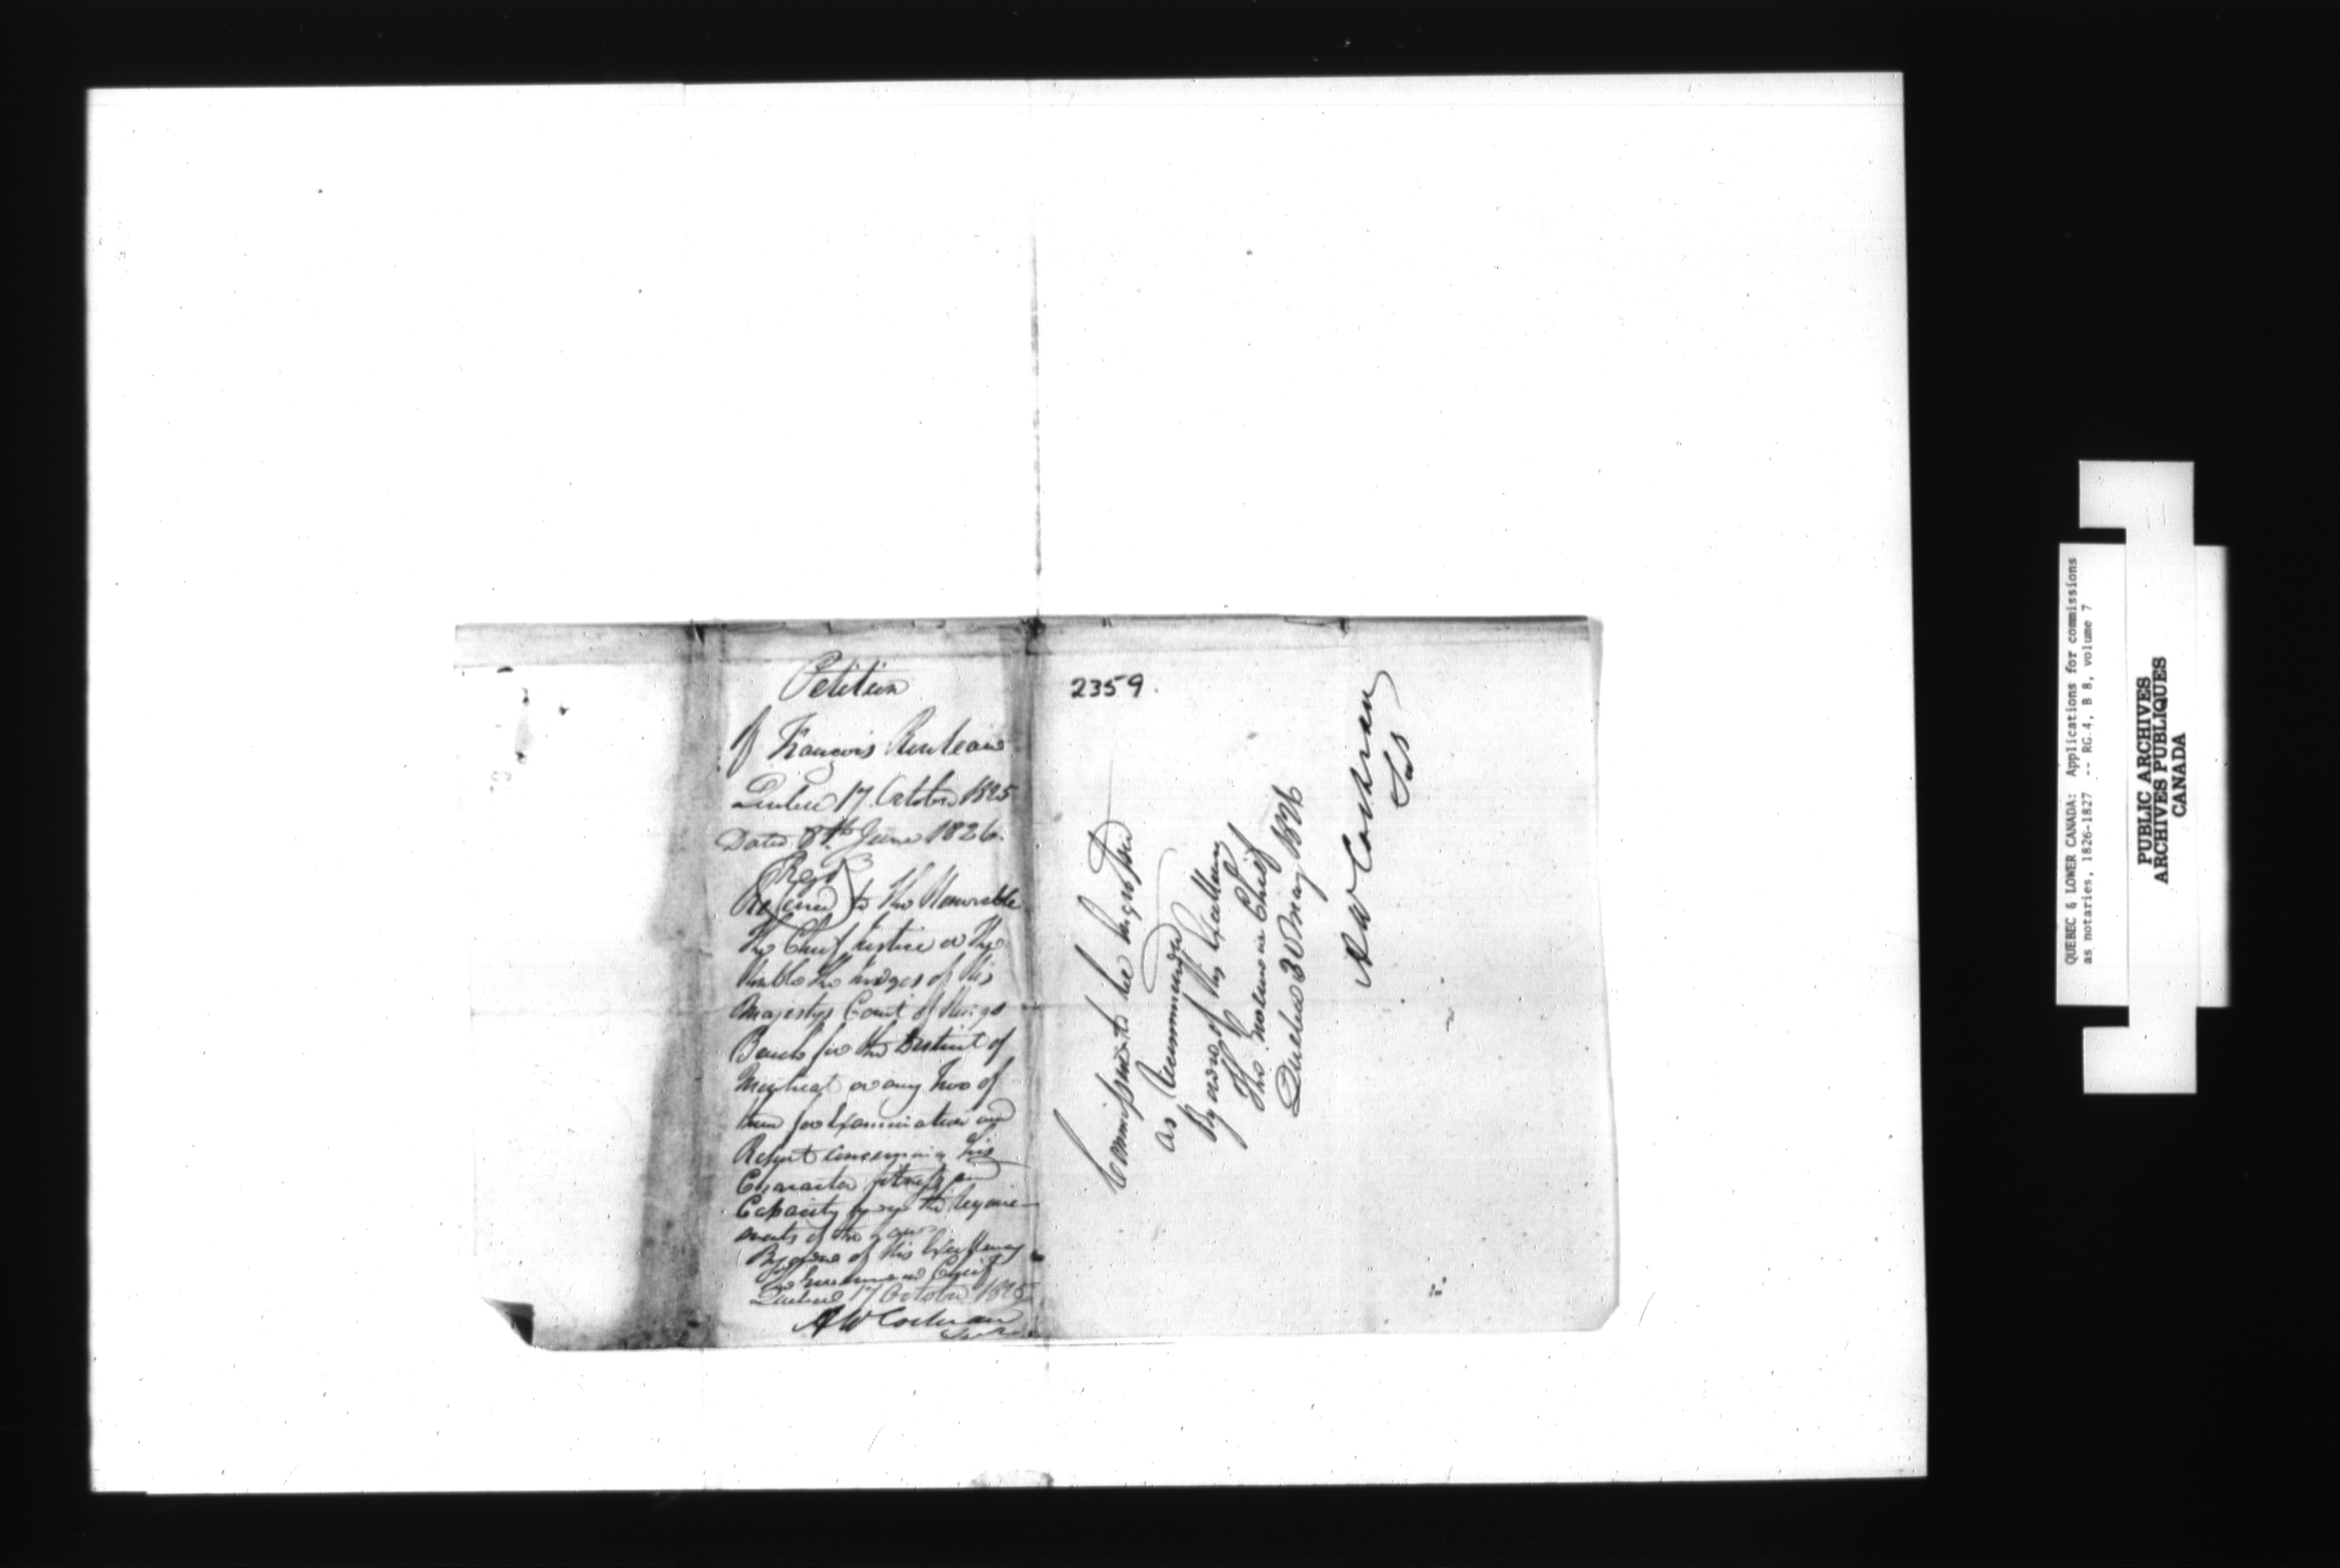 Petition
of François
Quebec 17 October 1825
Dated 8th June 1826.
Regd
Referred to the Honorable
The Chief Justice or the
Honble the Judges of His
Majestys Court of Kings
Bench for the District of
Montreal or any two of
them for Examination and
Report concerning his
Character fitness and
Capacity the require-
ments of the
By order of His Excellency
The Governor in Chief
Quebec 17 October 1825
A W Cochran
Secy
2359.
Commission to be
as Recommended
By order of His Excellency
The Governor in Chief
Quebec 30 May 1826
A W Cochran
Sec
QUEBEC & LOWER CANADA: Applications for commissions
as notaries, 1826-1827 -- RG 4, B 8, volume 7
PUBLIC ARCHIVES
ARCHIVES PUBLIQUES
CANADA